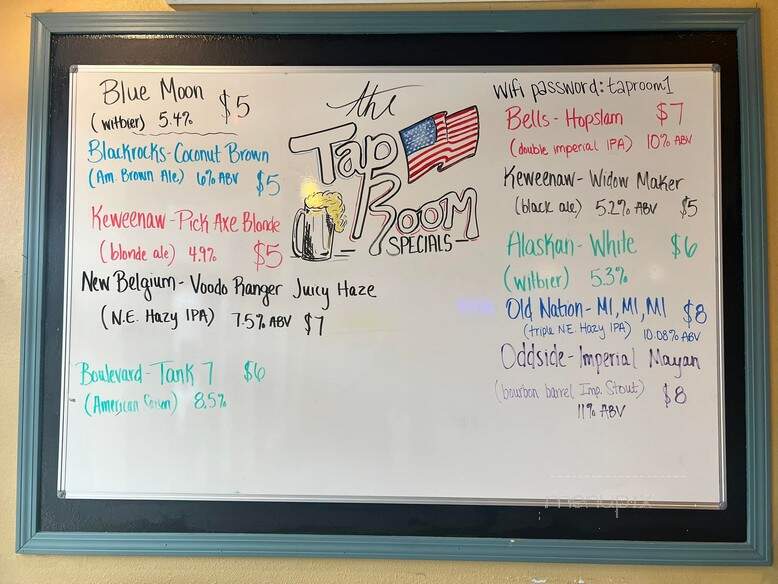 Blue Moon $5
(witbier) 5.4%
Blackrocks - Coconut Brown
(Am. Brown Ale) 6% ABV $5
Keweenaw - Pick Axe Blonde
(blonde ale) 4.9% $5
New Belgium - Voodo Ranger Juicy Haze
(N.E. Hazy IPA) 7.5% ABV $7
Boulevard - Tank 7 $6
(American) 8.5%
the
Tap
Room
SPECIALS
Wifi password: taproom1
Bells - Hopslam $7
(double imperial IPA) 10% ABV
Keweenaw - Widow Maker
(black ale) 5.2% ABV $5
Alaskan - White $6
(witbier) 5.3%
Old Nation - M1, M1, M1 $8
(triple N.E. Hazy IPA) 10.08% ABV
Oddside - Imperial Mayan
(bourbon barrel Imp. Stout) $8
11% ABV
menupix